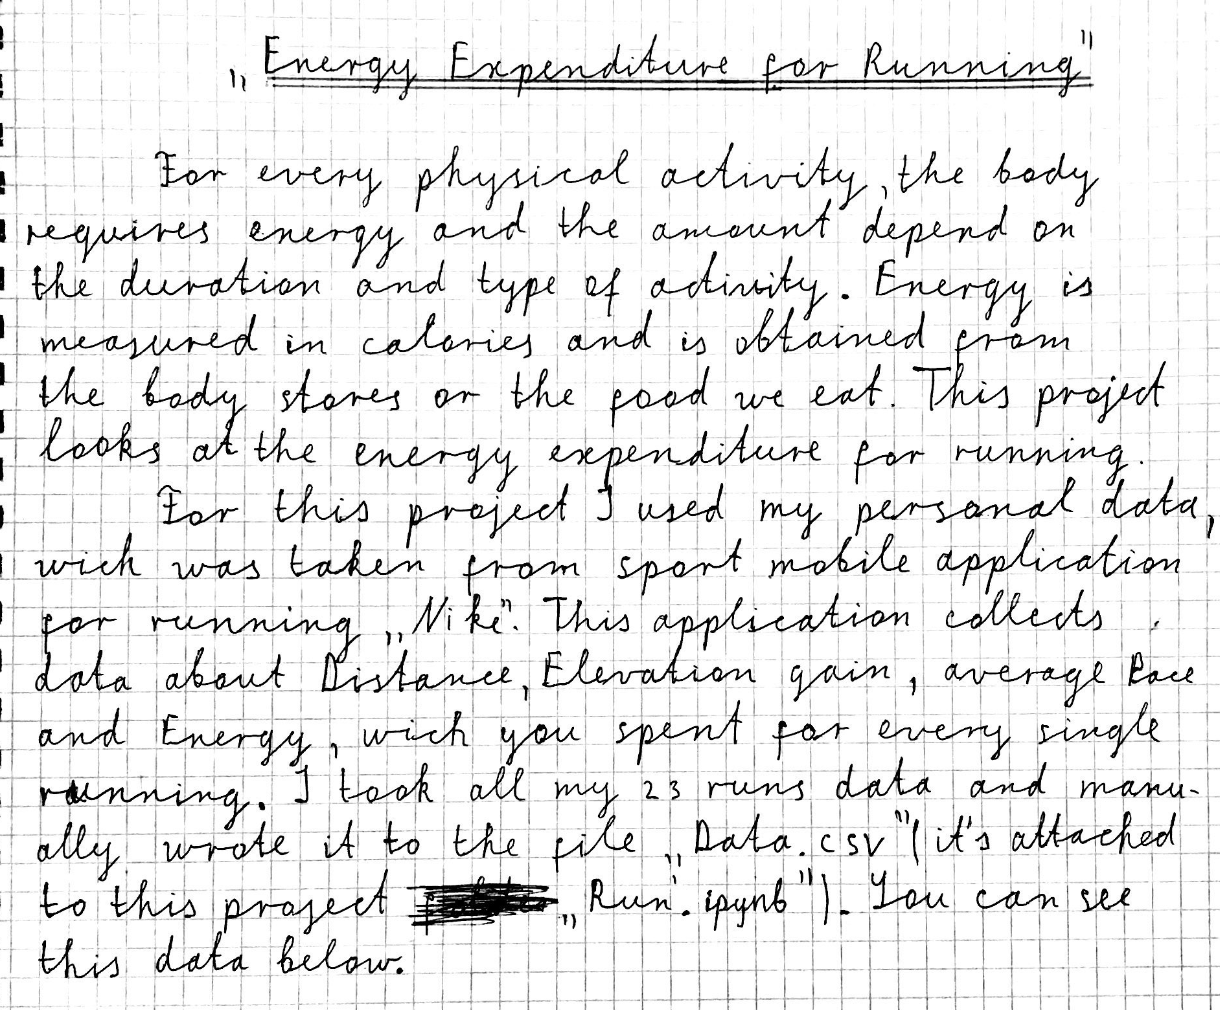 „Energy Expenditure for Running"
For every physical activity, the body
requires energy and the amount depend on
the duration and type of activity. Energy is
measured in calories and is obtained from
the body stores or the food we eat. This project
looks at the energy expenditure for running.
For this project I used my personal data,
wich was taken from sport mobile application
for running „Nike". This application collects
data about Distance, Elevation gain, average Pace
and Energy, wich you spent for every single
running. I took all my 23 runs data and manu-
ally wrote it to the file „Data.csv" (it's attached
to this project „Run.ipynb"). You can see
this data below.